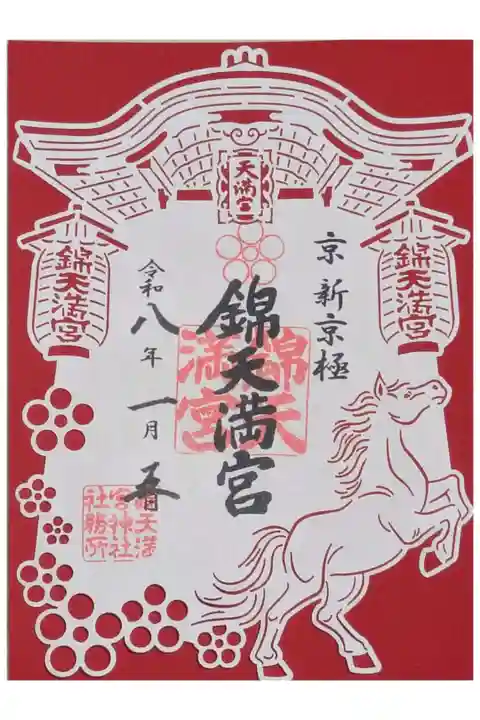 天満宮
錦天満宮
錦天満宮
京 新京極
錦天満宮
錦天満宮
令和八年 一月 五日
錦天満
宮神社
社務所